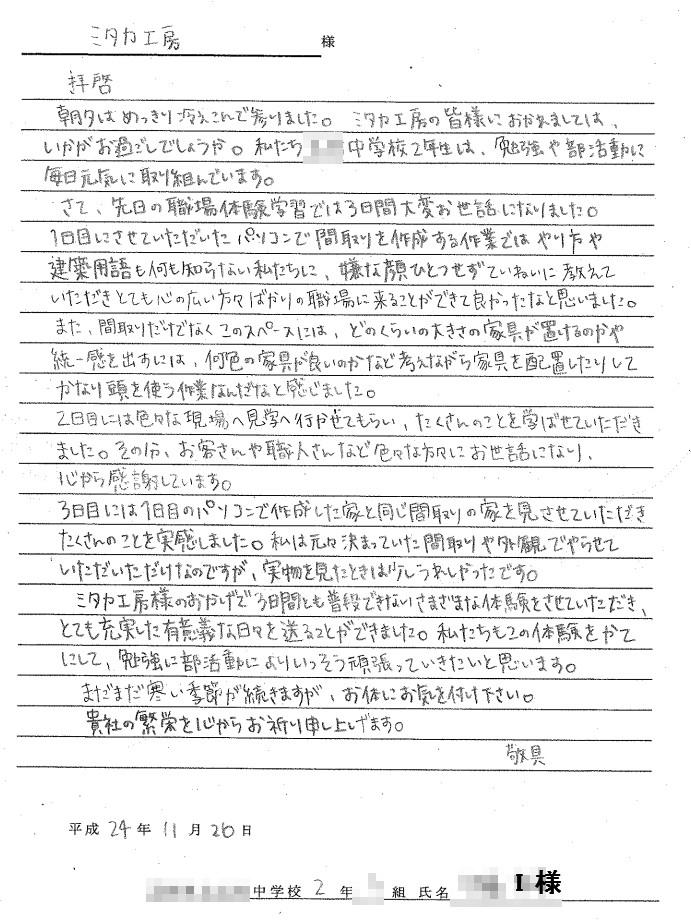 ミタカ工房 様
拝啓
朝夕はめっきり冷えこんで参りました。ミタカ工房の皆様におかれましては、
いかがお過ごしでしょうか。私たち 中学校2年生は、勉強や部活動に
毎日元気に取り組んでいます。
さて、先日の職場体験学習では3日間大変お世話になりました。
1日目にさせていただいたパソコンで間取りを作成する作業ではやり方や
建築用語も何も知らない私たちに、嫌な顔ひとつせずていねいに教えて
いただきとても心の広い方々ばかりの職場に来ることができて良かったなと思いました。
また、間取りだけでなくこのスペースには、どのくらいの大きさの家具が置けるのかや
統一感を出すには、何色の家具が良いのかなど考えながら家具を配置したりして
かなり頭を使う作業なんだなと感じました。
2日目には色々な現場へ見学へ行かせてもらい、たくさんのことを学ばせていただき
ました。その分、お客さんや職人さんなど色々な方々にお世話になり、
心から感謝しています。
3日目には1日目のパソコンで作成した家と同じ間取りの家を見させていただき
たくさんのことを実感しました。私は元々決まっていた間取りや外観でやらせて
いただいただけなのですが、実物を見たときは少しうれしかったです。
ミタカ工房様のおかげで3日間とも普段できないさまざまな体験をさせていただき、
とても充実した有意義な日々を送ることができました。私たちもこの体験をかて
にして、勉強に部活動によりいっそう頑張っていきたいと思います。
まだまだ寒い季節が続きますが、お体にお気を付け下さい。
貴社の繁栄を心からお祈り申し上げます。
敬具
平成 24 年 11 月 26 日
中学校 2 年 組 氏名 I 様